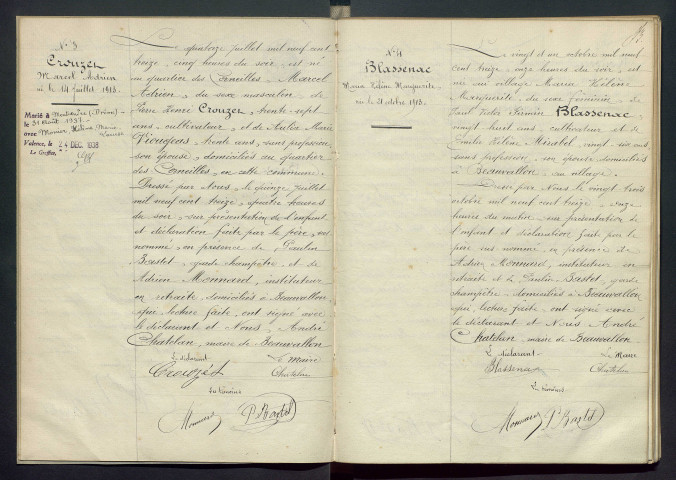 N° 3
Crouzet
Marcel Adrien
né le 14 juillet 1913.
Marié à Montvendre (Drôme)
le 31 août 1937
avec Monier Hélène Marie
Louise
Valence, le 24 DEC. 1938
Le Greffier,
Le quatorze juillet mil neuf cent
treize, cinq heures du soir, est né
au quartier des Corneilles, Marcel
Adrien, du sexe masculin, de
Père Henri Crouzet, trente-sept
ans, cultivateur, et de Julie Marie
trente ans, sans profession,
son épouse, domiciliés au quartier
des Corneilles, en cette commune.
Dressé par Nous, le quinze juillet
mil neuf cent treize, quatre heures
du soir, sur présentation de l'enfant
et déclaration faite par le père, sus
nommé, en présence de Paulin
Bastet, garde champêtre, et de
Adrien Monnard, instituteur
en retraite, domiciliés à Beauvallon
qui, lecture faite, ont signé avec
le déclarant et Nous, André
Chatelan, maire de Beauvallon
Le déclarant
Le Maire
Crouzet
Chatelan
Les témoins
Monnard
P. Bastet
N° 4
Blassenac
Maria Hélène Marguerite
née le 21 octobre 1913.
Le vingt et un octobre mil neuf
cent treize, onze heures du soir, est
née au village Maria Hélène
Marguerite, du sexe féminin, de
Paul Victor Firmin Blassenac,
vingt huit ans, cultivateur, et de
Emilie Hélène Mirabel, vingt-six ans,
sans profession, son épouse domiciliés
à Beauvallon, au village.
Dressé par Nous le vingt trois
octobre mil neuf cent treize, onze
heures du matin, sur présentation de
l'enfant et déclaration faite par le
père sus nommé, en présence de
Adrien Monnard, instituteur en
retraite et de Paulin Bastet, garde
champêtre, domiciliés à Beauvallon
qui, lecture faite, ont signé avec
le déclarant et Nous André
Chatelan, maire de Beauvallon
Le déclarant
Le Maire
Blassenac
Chatelan
Les témoins
Monnard
P. Bastet